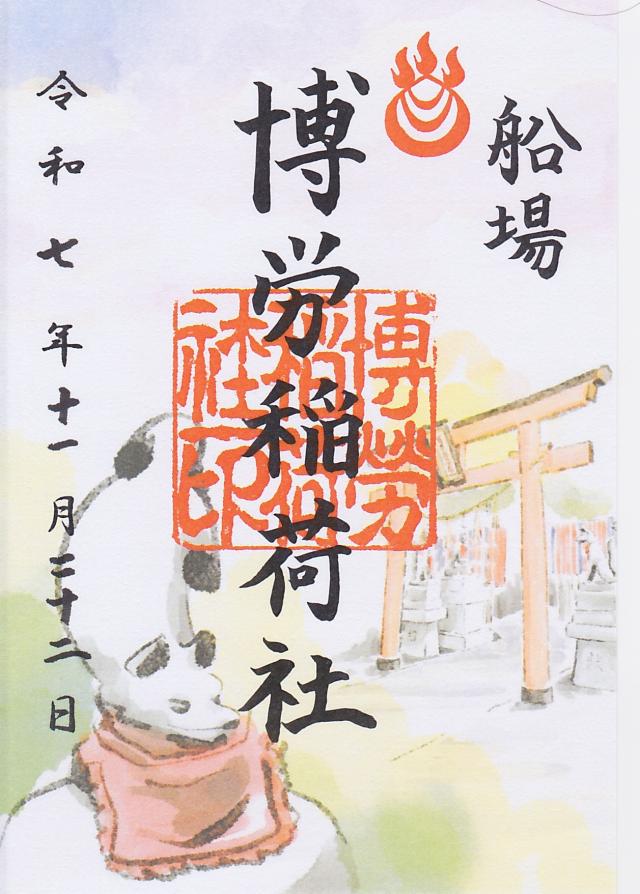 船場
博労稲荷社
博勞
稲荷
社印
令和七年十一月二十二日